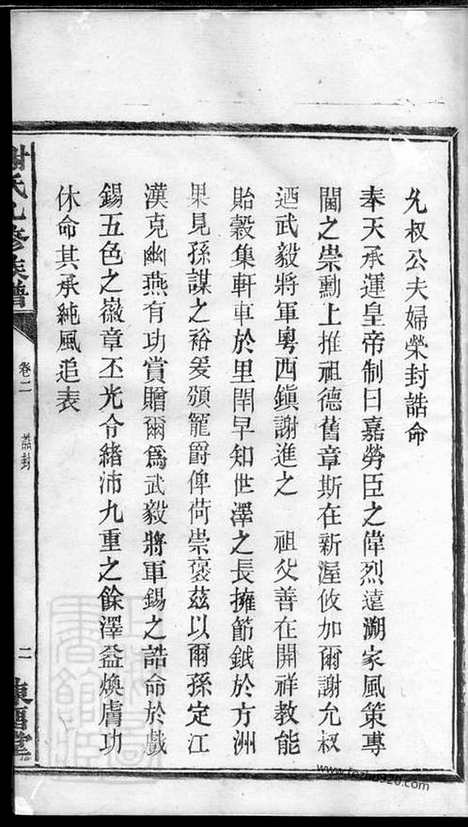 允叔公夫婦榮封誥命
奉天承運皇帝制曰嘉勞臣之偉烈遠溯家風策專
閫之崇勳上推祖德舊章斯在新渥攸加爾謝允叔
迺武毅將軍粵西鎮謝進之 祖父善在開祥教能
貽穀集軒車於里閈早知世澤之長擁節鉞於方洲
果見孫謀之裕爰頒寵爵俾荷崇褒茲以爾孫定江
漢克幽燕有功賞贈爾為武毅將軍錫之誥命於戲
錫五色之徽章丕光令緒沛九重之餘澤益煥膚功
休命其承純風追表
謝氏九修族譜
卷二
誥封
二
東山堂